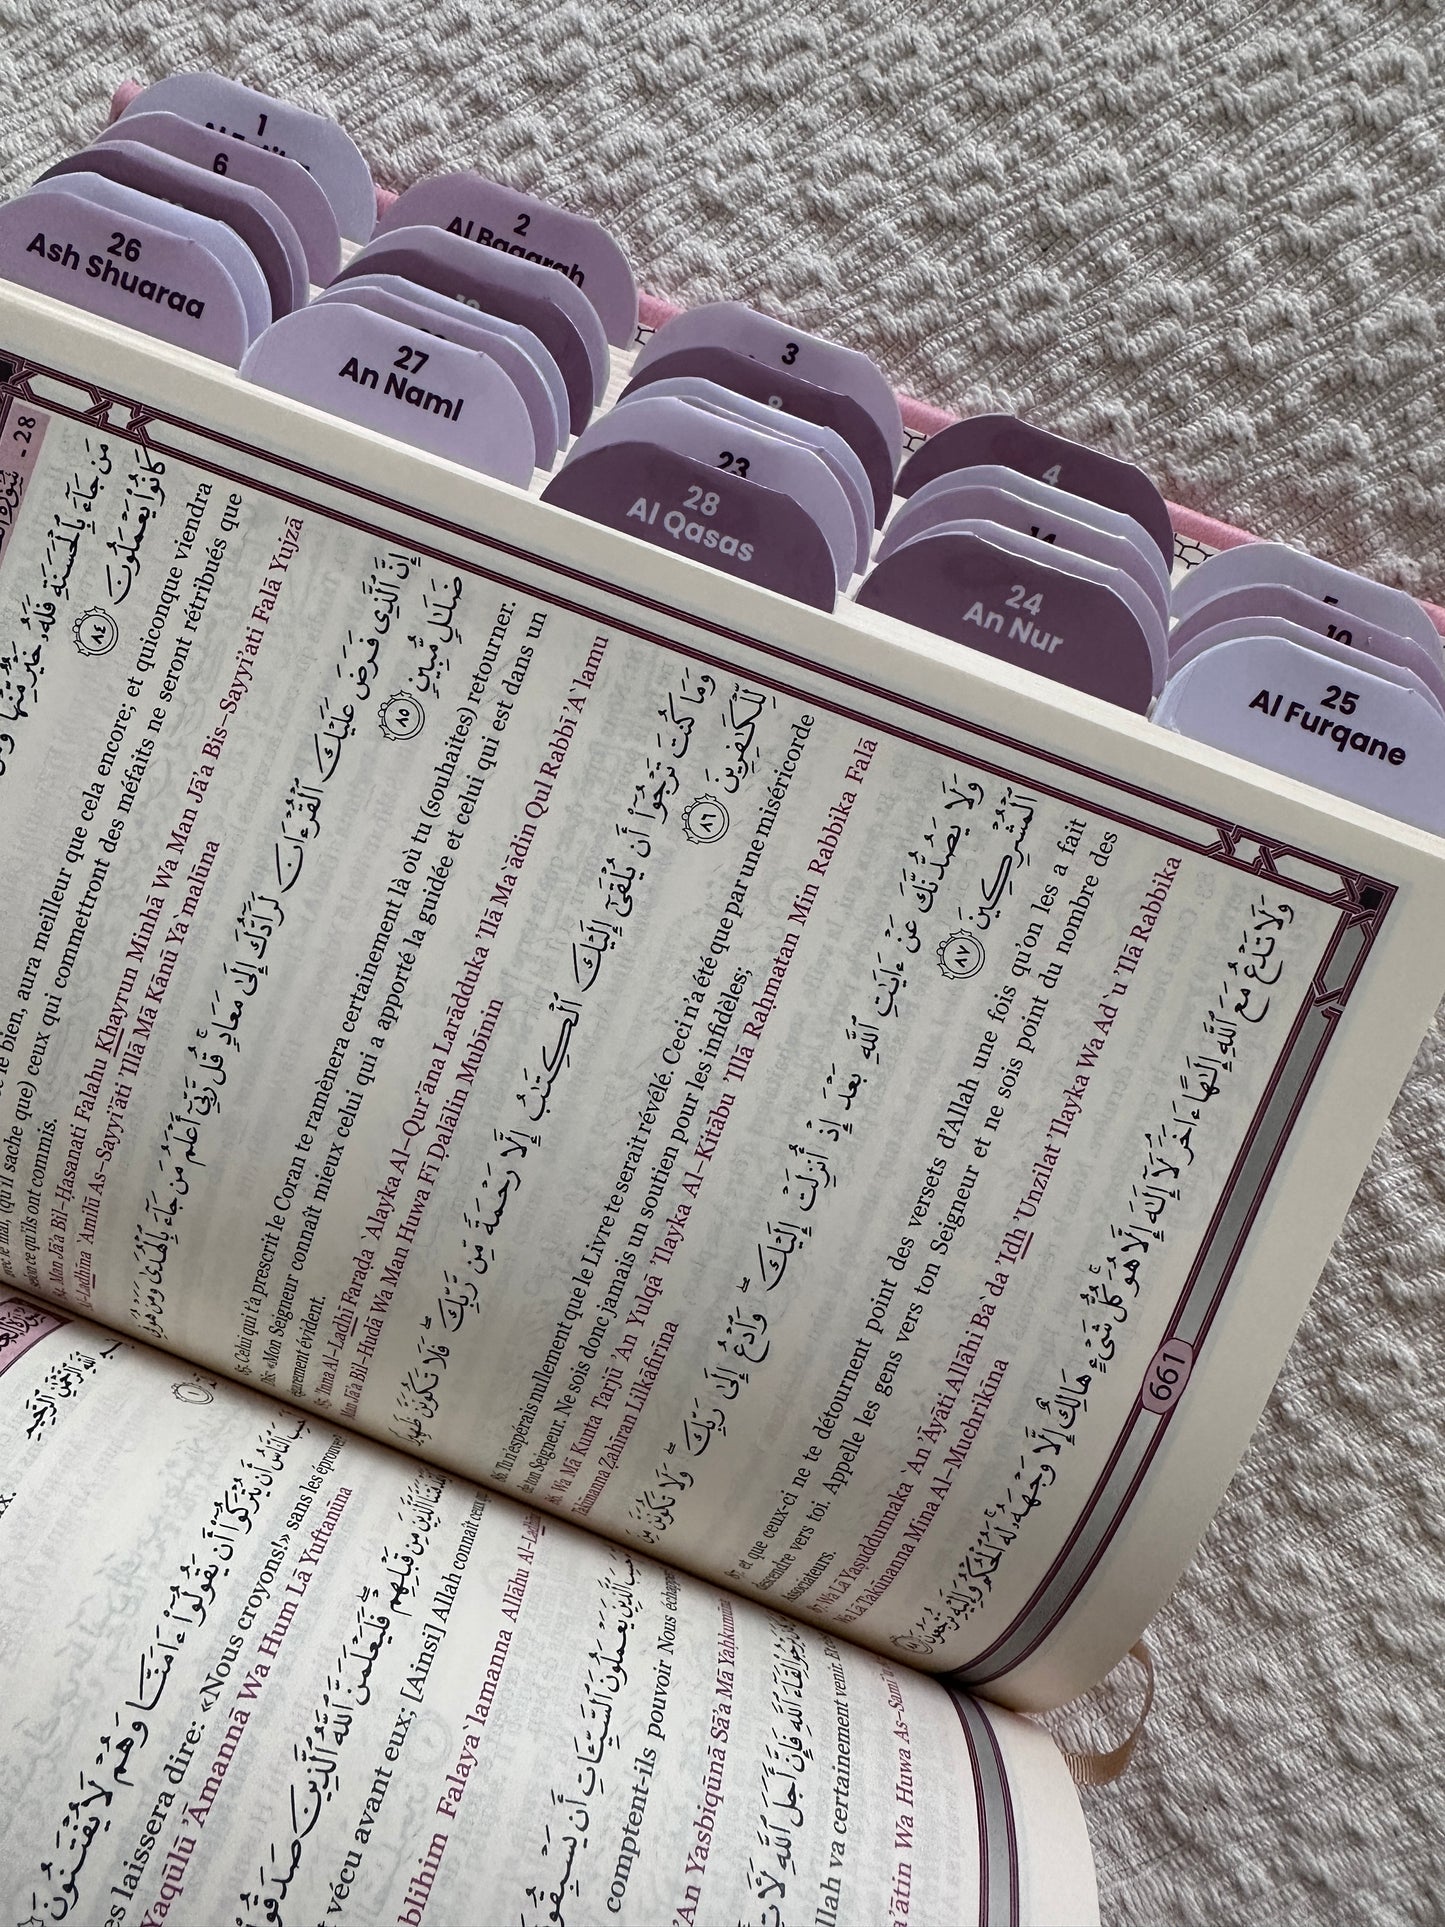 1
6
26
Ash Shuaraa
2
Al Baqarah
27
An Naml
3
8
23
28
Al Qasas
4
14
24
An Nur
10
25
Al Furqane
- 28
مَن جَآءَ بِٱلْحَسَنَةِ فَلَهُۥ خَيْرٌ مِّنْهَا
كَانُوا۟ يَعْمَلُونَ ٨٤
le bien, aura meilleur que cela encore; et quiconque viendra
avec le mal, (qu'il sache que) ceux qui commettront des méfaits ne seront rétribués que
selon ce qu'ils ont commis.
84. Man Jā'a Bil-Ḥasanati Falahu Khayrun Minhā Wa Man Jā'a Bis-Sayyi'ati Falā Yujzá
Al-Ladhīna `Amilū As-Sayyi'āti 'Illā Mā Kānū Ya`malūna
إِنَّ ٱلَّذِى فَرَضَ عَلَيْكَ ٱلْقُرْءَانَ لَرَآدُّكَ إِلَىٰ مَعَادٍ ۚ قُل رَّبِّىٓ أَعْلَمُ مَن جَآءَ بِٱلْهُدَىٰ وَمَنْ هُوَ فِى
ضَلَـٰلٍ مُّبِينٍ ٨٥
85. Celui qui t'a prescrit le Coran te ramènera certainement là où tu (souhaites) retourner.
Dis: «Mon Seigneur connaît mieux celui qui a apporté la guidée et celui qui est dans un
égarement évident.
85. 'Inna Al-Ladhī Faraḍa `Alayka Al-Qur'āna Larādduka 'Ilá Ma`ādin Qul Rabbī 'A`lamu
Man Jā'a Bil-Hudá Wa Man Huwa Fī Ḍalālin Mubīnin
وَمَا كُنتَ تَرْجُوٓا۟ أَن يُلْقَىٰٓ إِلَيْكَ ٱلْكِتَـٰبُ إِلَّا رَحْمَةً مِّن رَّبِّكَ ۖ فَلَا تَكُونَنَّ ظَهِيرًا
لِّلْكَـٰفِرِينَ ٨٦
86. Tu n'espérais nullement que le Livre te serait révélé. Ceci n'a été que par une miséricorde
de ton Seigneur. Ne sois donc jamais un soutien pour les infidèles;
86. Wa Mā Kunta Tarjū 'An Yulqá 'Ilayka Al-Kitābu 'Illā Raḥmatan Min Rabbika Falā
Takūnanna Ẓahīran Lilkāfirīna
وَلَا يَصُدُّنَّكَ عَنْ ءَايَـٰتِ ٱللَّهِ بَعْدَ إِذْ أُنزِلَتْ إِلَيْكَ ۖ وَٱدْعُ إِلَىٰ رَبِّكَ ۖ وَلَا تَكُونَنَّ مِنَ
ٱلْمُشْرِكِينَ ٨٧
87. et que ceux-ci ne te détournent point des versets d'Allah une fois qu'on les a fait
descendre vers toi. Appelle les gens vers ton Seigneur et ne sois point du nombre des
Associateurs.
87. Wa Lā Yaṣuddunnaka `An 'Āyāti Allāhi Ba`da 'Idh 'Unzilat 'Ilayka Wa Ad`u 'Ilá Rabbika
Wa Lā Takūnanna Mina Al-Muchrikīna
وَلَا تَدْعُ مَعَ ٱللَّهِ إِلَـٰهًا ءَاخَرَ ۘ لَآ إِلَـٰهَ إِلَّا هُوَ ۚ كُلُّ شَىْءٍ هَالِكٌ إِلَّا وَجْهَهُۥ ۚ لَهُ ٱلْحُكْمُ وَإِلَيْهِ تُرْجَعُونَ
661
أَن يُتْرَكُوٓا۟ أَن يَقُولُوٓا۟ ءَامَنَّا وَهُمْ لَا يُفْتَنُونَ
es laissera dire: «Nous croyons!» sans les éprouver?
Yaqūlū 'Āmannā Wa Hum Lā Yuftanūna
مِن قَبْلِهِمْ ۖ فَلَيَعْلَمَنَّ ٱللَّهُ ٱلَّذِينَ صَدَقُوا۟
vécu avant eux; [Ainsi] Allah connaît ceux
blihim Falaya`lamanna Allāhu Al-Ladhīna
ٱلَّذِينَ يَعْمَلُونَ ٱلسَّيِّـَٔاتِ أَن يَسْبِقُونَا
comptent-ils pouvoir Nous échapper
'An Yasbiqūnā Sā'a Mā Yaḥkumūna
لِقَآءَ ٱللَّهِ فَإِنَّ أَجَلَ ٱللَّهِ لَـَٔاتٍ
llah va certainement venir.
a'ātin Wa Huwa As-Samī`u